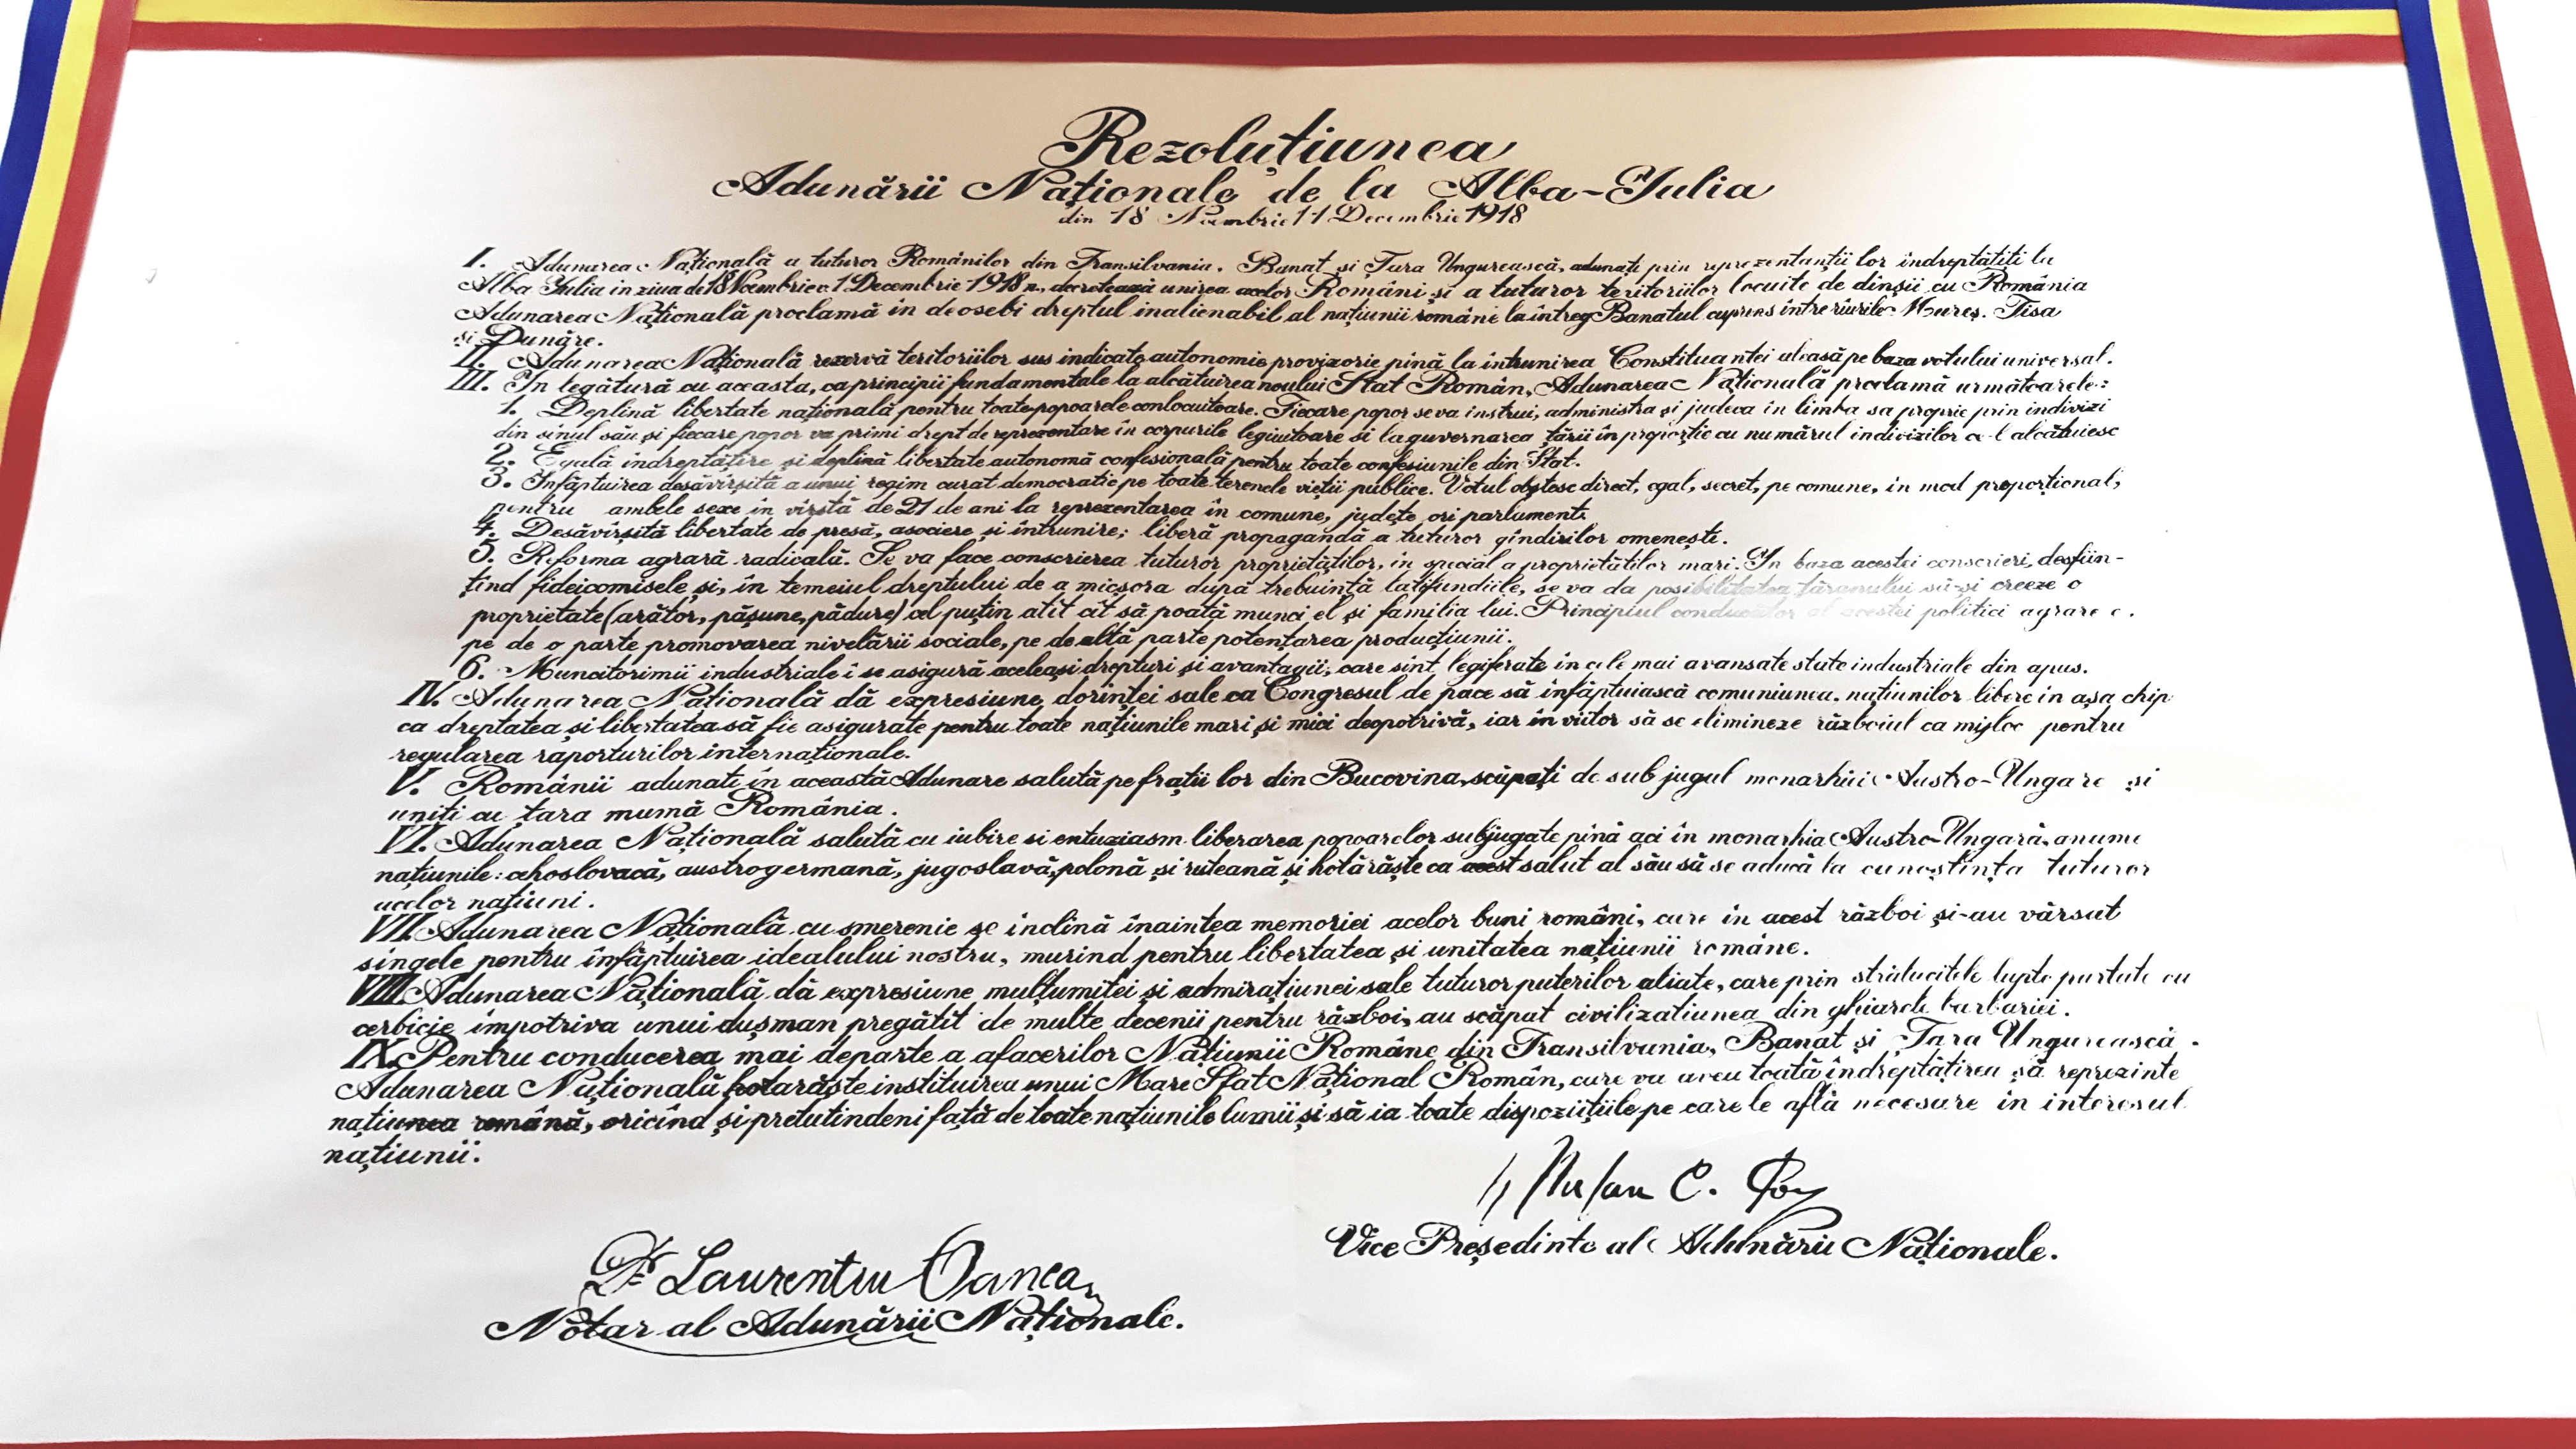 Rezoluțiunea
Adunării Naționale de la Alba-Iulia
din 18 Noembrie/1 Decembrie 1918
I. Adunarea Națională a tuturor Românilor din Transilvania, Banat și Țara Ungurească, adunați prin reprezentanții lor îndreptățiți la
Alba Iulia în ziua de 18 Noembrie v. 1 Decembrie 1918 n., decretează unirea acelor Români și a tuturor teritoriilor locuite de dinșii cu România
Adunarea Națională proclamă în deosebi dreptul inalienabil al națiunii române la întreg Banatul cuprins între rîurile Mureș, Tisa
și Dunăre.
II. Adunarea Națională rezervă teritoriilor sus indicate autonomie provizorie pină la întrunirea Constituantei aleasă pe baza votului universal.
III. În legătură cu aceasta, ca principii fundamentale la alcătuirea noului Stat Român, Adunarea Națională proclamă următoarele:
1. Deplină libertate națională pentru toate popoarele conlocuitoare. Fiecare popor se va instrui, administra și judeca în limba sa proprie prin indivizi
din sinul său și fiecare popor va primi drept de reprezentare în corpurile legiuitoare si la guvernarea țării în proporție cu numărul indivizilor ce-l alcătuiesc
2. Egală îndreptățire și deplină libertate autonomă confesională pentru toate confesiunile din Stat.
3. Înfăptuirea desăvîrșită a unui regim curat democratic pe toate terenele vieții publice. Votul obștesc direct, egal, secret, pe comune, în mod proporțional,
pentru ambele sexe în vîrstă de 21 de ani la reprezentarea în comune, județe ori parlament.
4. Desăvîrșită libertate de presă, asociere și întrunire; liberă propagandă a tuturor gîndirilor omenești.
5. Reforma agrară radicală. Se va face conscrierea tuturor proprietăților, în special a proprietăților mari. În baza acestei conscrieri, desfiin-
țînd fideicomisele și, în temeiul dreptului de a micșora după trebuință latifundiile, se va da posibilitatea țăranului să-și creeze o
proprietate (arător, pășune, pădure) cel puțin atît cît să poată munci el și familia lui. Principiul conducător al acestei politici agrare e.
pe de o parte promovarea nivelării sociale, pe de altă parte potențarea producțiunii.
6. Muncitorimii industriale i se asigură aceleași drepturi și avantagii, care sint legiferate în cele mai avansate state industriale din apus.
IV. Adunarea Națională dă expresiune dorinței sale ca Congresul de pace să înfăptuiască comuniunea națiunilor libere în așa chip
ca dreptatea și libertatea să fie asigurate pentru toate națiunile mari și mici deopotrivă, iar în viitor să se elimineze războiul ca mijloc pentru
regularea raporturilor internaționale.
V. Românii adunati în această Adunare salută pe frații lor din Bucovina, scăpați de sub jugul monarhiei Austro-Ungare și
uniți cu țara mumă România.
VI. Adunarea Națională salută cu iubire si entuziasm liberarea popoarelor subjugate pină aci în monarhia Austro-Ungară, anume
națiunile: cehoslovacă, austrogermană, jugoslavă, polonă și ruteană și hotărăște ca acest salut al său să se aducă la cunoștința tuturor
acelor națiuni.
VII. Adunarea Națională cu smerenie se inclină înaintea memoriei acelor buni români, care în acest război și-au vărsat
singele pentru înfăptuirea idealului nostru, murind pentru libertatea și unitatea națiunii române.
VIII. Adunarea Națională dă expresiune mulțumitei și admirațiunei sale tuturor puterilor aliate, care prin strălucitele lupte purtate cu
cerbicie împotriva unui dușman pregătit de multe decenii pentru război, au scăpat civilizatiunea din ghiarele barbariei.
IX. Pentru conducerea mai departe a afacerilor Națiunii Române din Transilvania, Banat și Țara Ungurească,
Adunarea Națională hotarăște instituirea unui Mare Sfat Național Român, care va avea toată îndreptățirea să reprezinte
națiunea română, oricînd și pretutindeni față de toate națiunile lumii și să ia toate dispozițiile pe care le află necesare în interesul
națiunii.
Vice Președinte al Adunării Naționale.
Dr Laurentiu Oanea
Notar al Adunării Naționale.